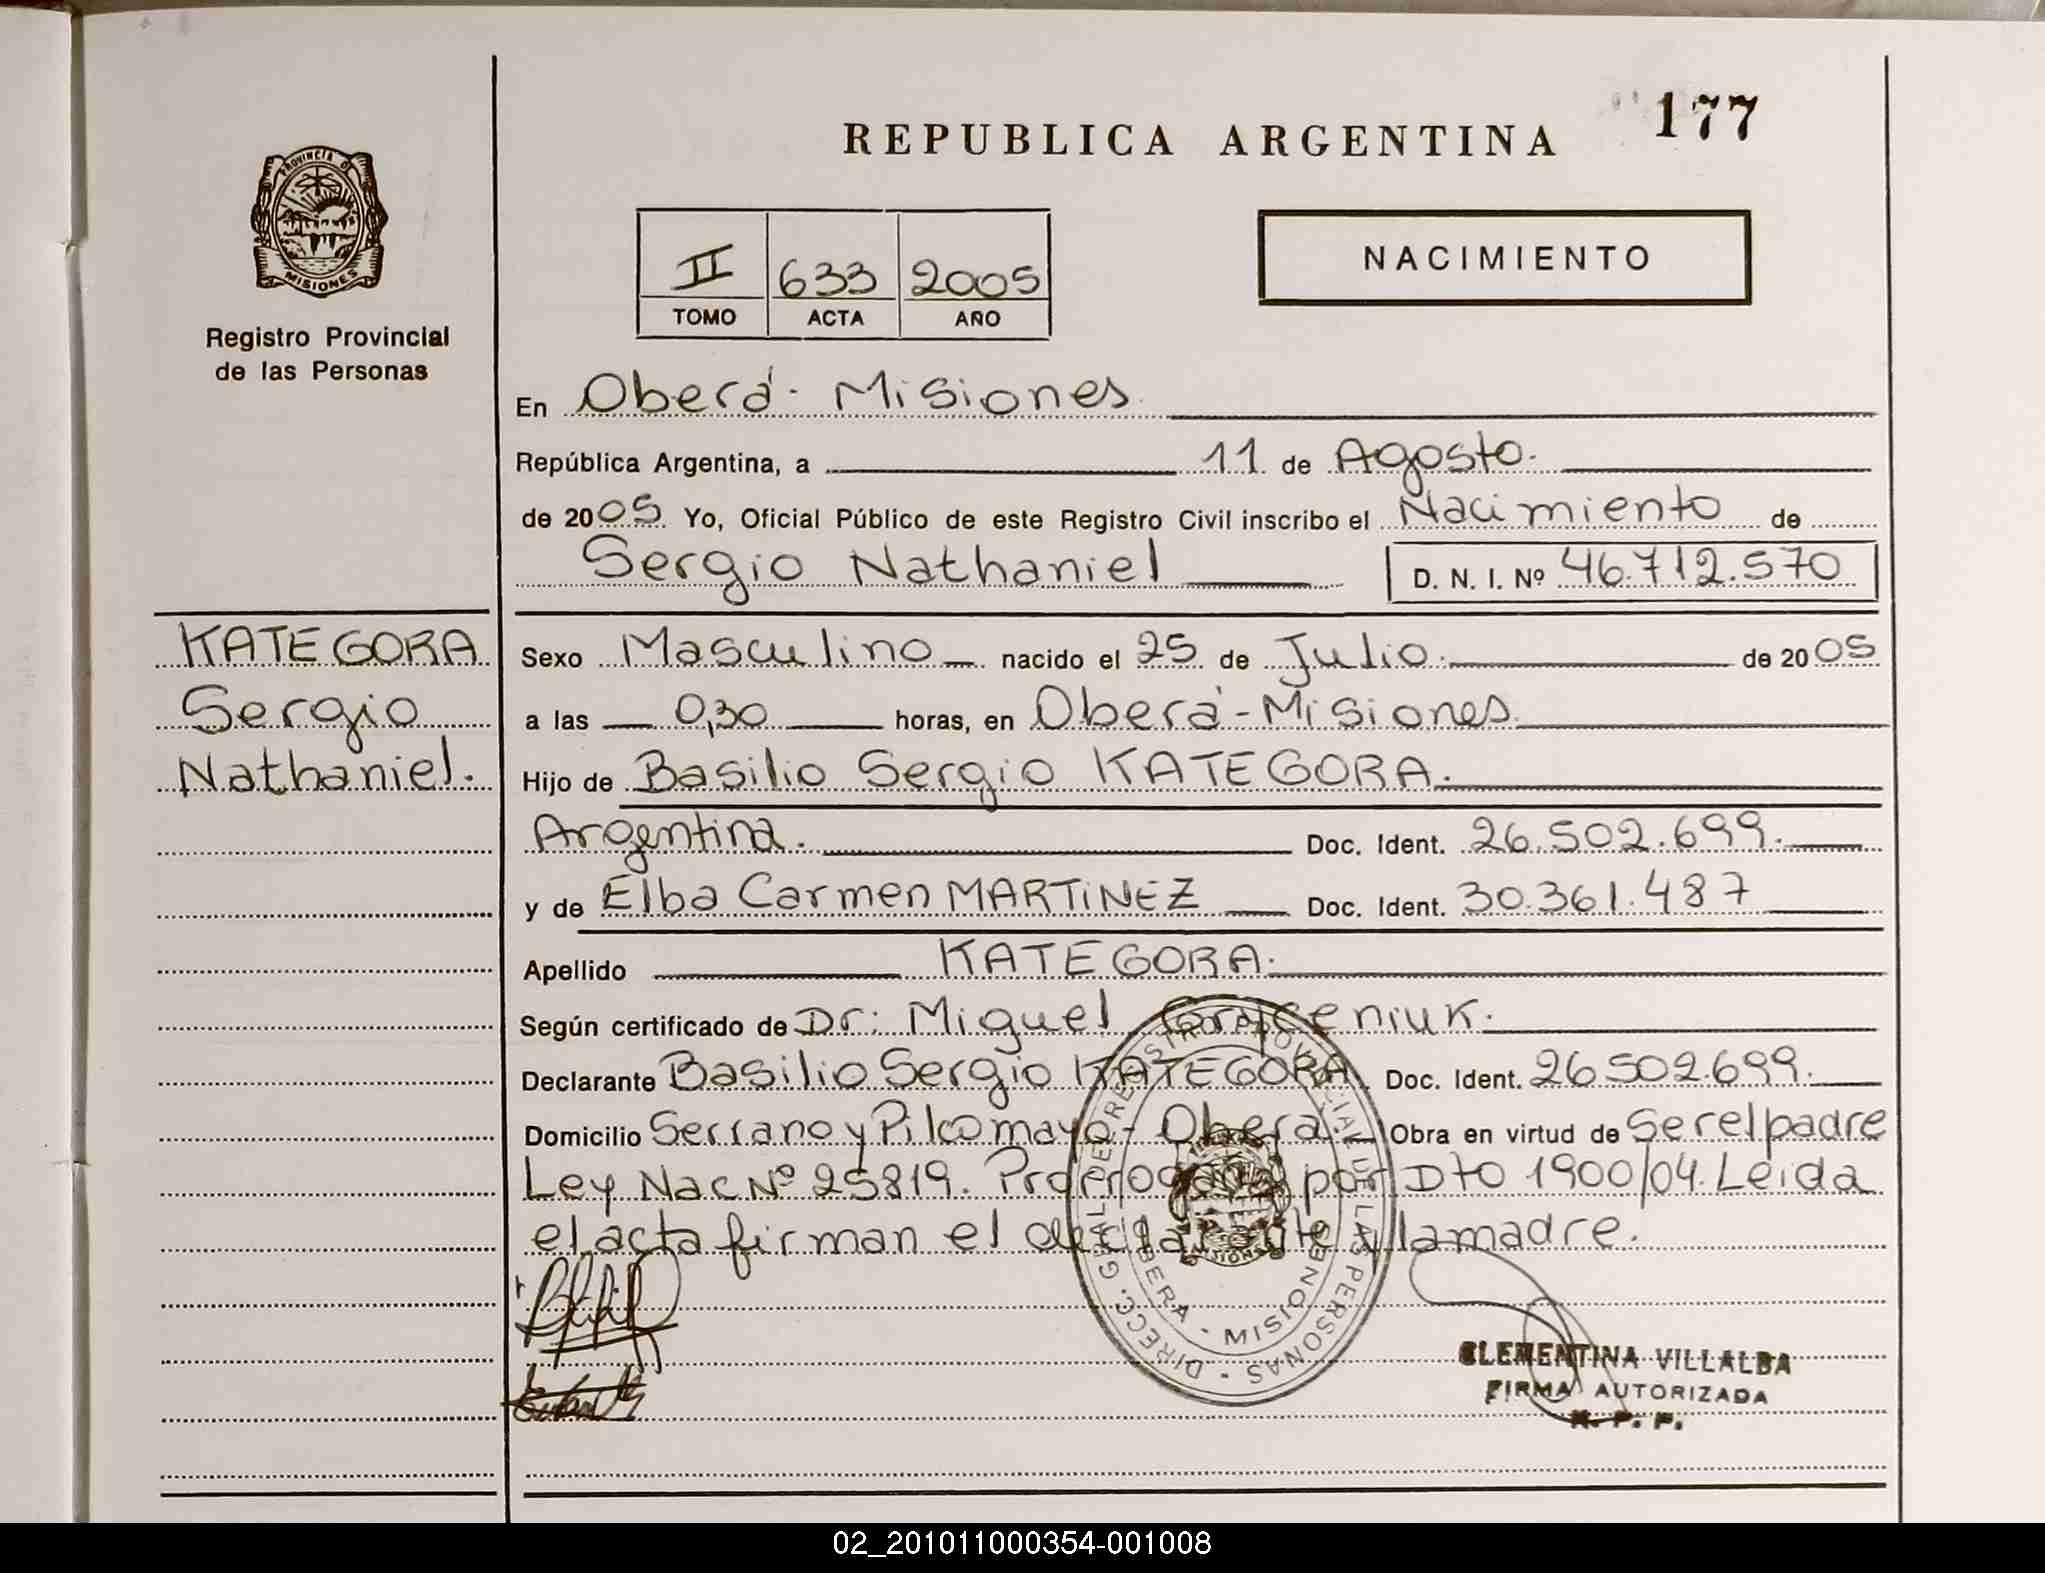 REPUBLICA ARGENTINA 177
PROVINCIA DE
MISIONES
Registro Provincial
de las Personas
II 633 2005
TOMO ACTA AÑO
NACIMIENTO
En Oberá - Misiones
República Argentina, a 11 de Agosto.
de 2005 Yo, Oficial Público de este Registro Civil inscribo el Nacimiento de
Sergio Nathaniel D. N. I. Nº 46.712.570
KATEGORA
Sergio
Nathaniel.
Sexo Masculino nacido el 25 de Julio. de 2005
a las 0,30 horas, en Oberá - Misiones
Hijo de Basilio Sergio KATEGORA.
Argentina. Doc. Ident. 26.502.699.
y de Elba Carmen MARTINEZ Doc. Ident. 30.361.487
Apellido KATEGORA.
Según certificado de Dr: Miguel
Declarante Basilio Sergio KATEGORA Doc. Ident. 26.502.699.
Domicilio Serrano y Pilcomayo - Oberá. Obra en virtud de Ser el padre
Ley Nac Nº 25819. por Dto 1900/04. Leida
el acta firman el declarante y la madre.
DIRECC. GRAL DE REGISTRO PROVINCIAL DE LAS PERSONAS
OBERA - MISIONES
CLEMENTINA VILLALBA
FIRMA AUTORIZADA
R. P. P.
02_201011000354-001008